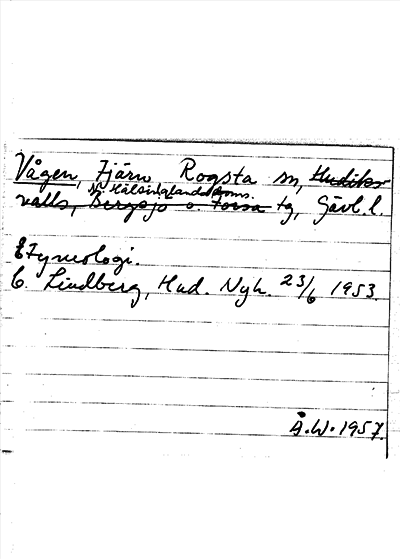 Vågen, Fjärn Rogsta sn, Hudiks-
N. Hälsinglands doms.
valls, Bergsjö o. Forsa tg, Gävl. l.
Etymologi.
C. Lindberg, Hud. Nyh. 23/6 1953.
Å.W. 1957.